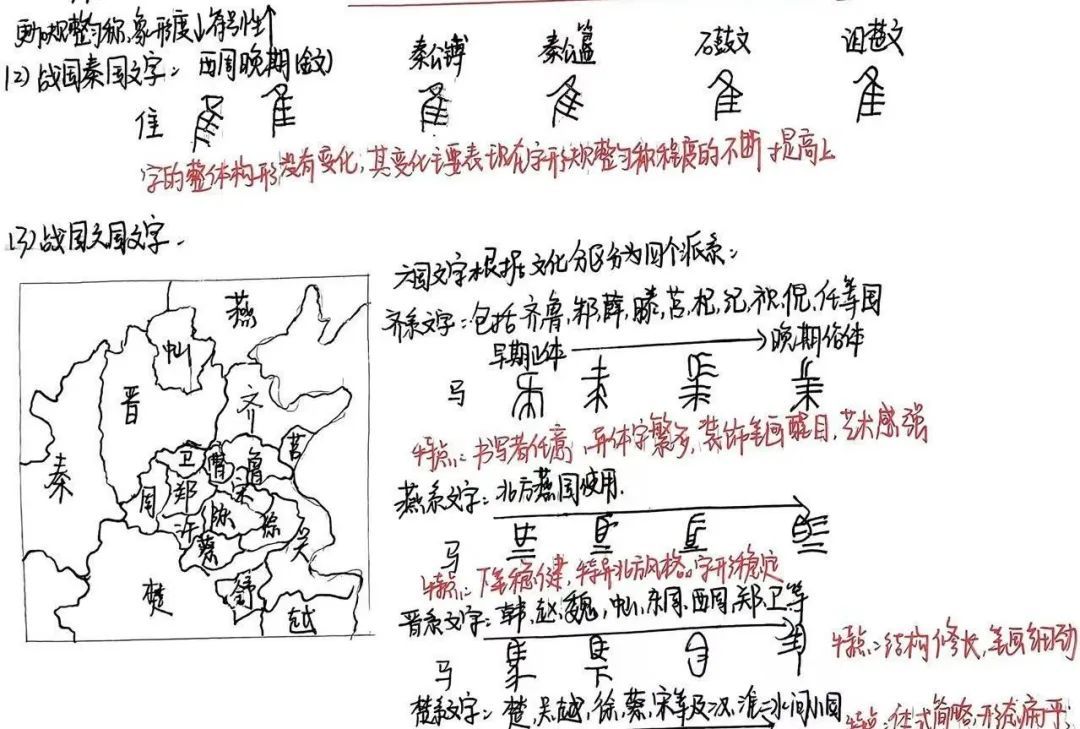 更加规整匀称,象形度↓符号性↑
(2)战国秦国文字: 西周晚期(金文) 秦公镈 秦公簋 石鼓文 诅楚文
隹
字的整体构形没有变化,其变化主要表现在字形规整匀称程度的不断提高上
(3)战国六国文字.
六国文字根据文化分区分为四个派系:
齐系文字:包括齐鲁,邾,薛,滕,莒,杞,纪,祝,倪,任等国
早期正体 → 晚期俗体
马
特点:书写者任意,异体字繁多,装饰笔画醒目,艺术感强
燕系文字:北方燕国使用.
马
特点:下笔稳健,特异北方风格。字形稳定
晋系文字:韩,赵,魏,中山,东周,西周,郑,卫等
马
特点:结构修长,笔画细劲
楚系文字:楚,吴,越,徐,蔡,宋等及汉,淮二水间小国
特点:体式简略,形态扁平;
燕
中山
晋
齐
秦
卫
曹
鲁
莒
周
郑
宋
许
陈
徐
蔡
吴
楚
舒
越